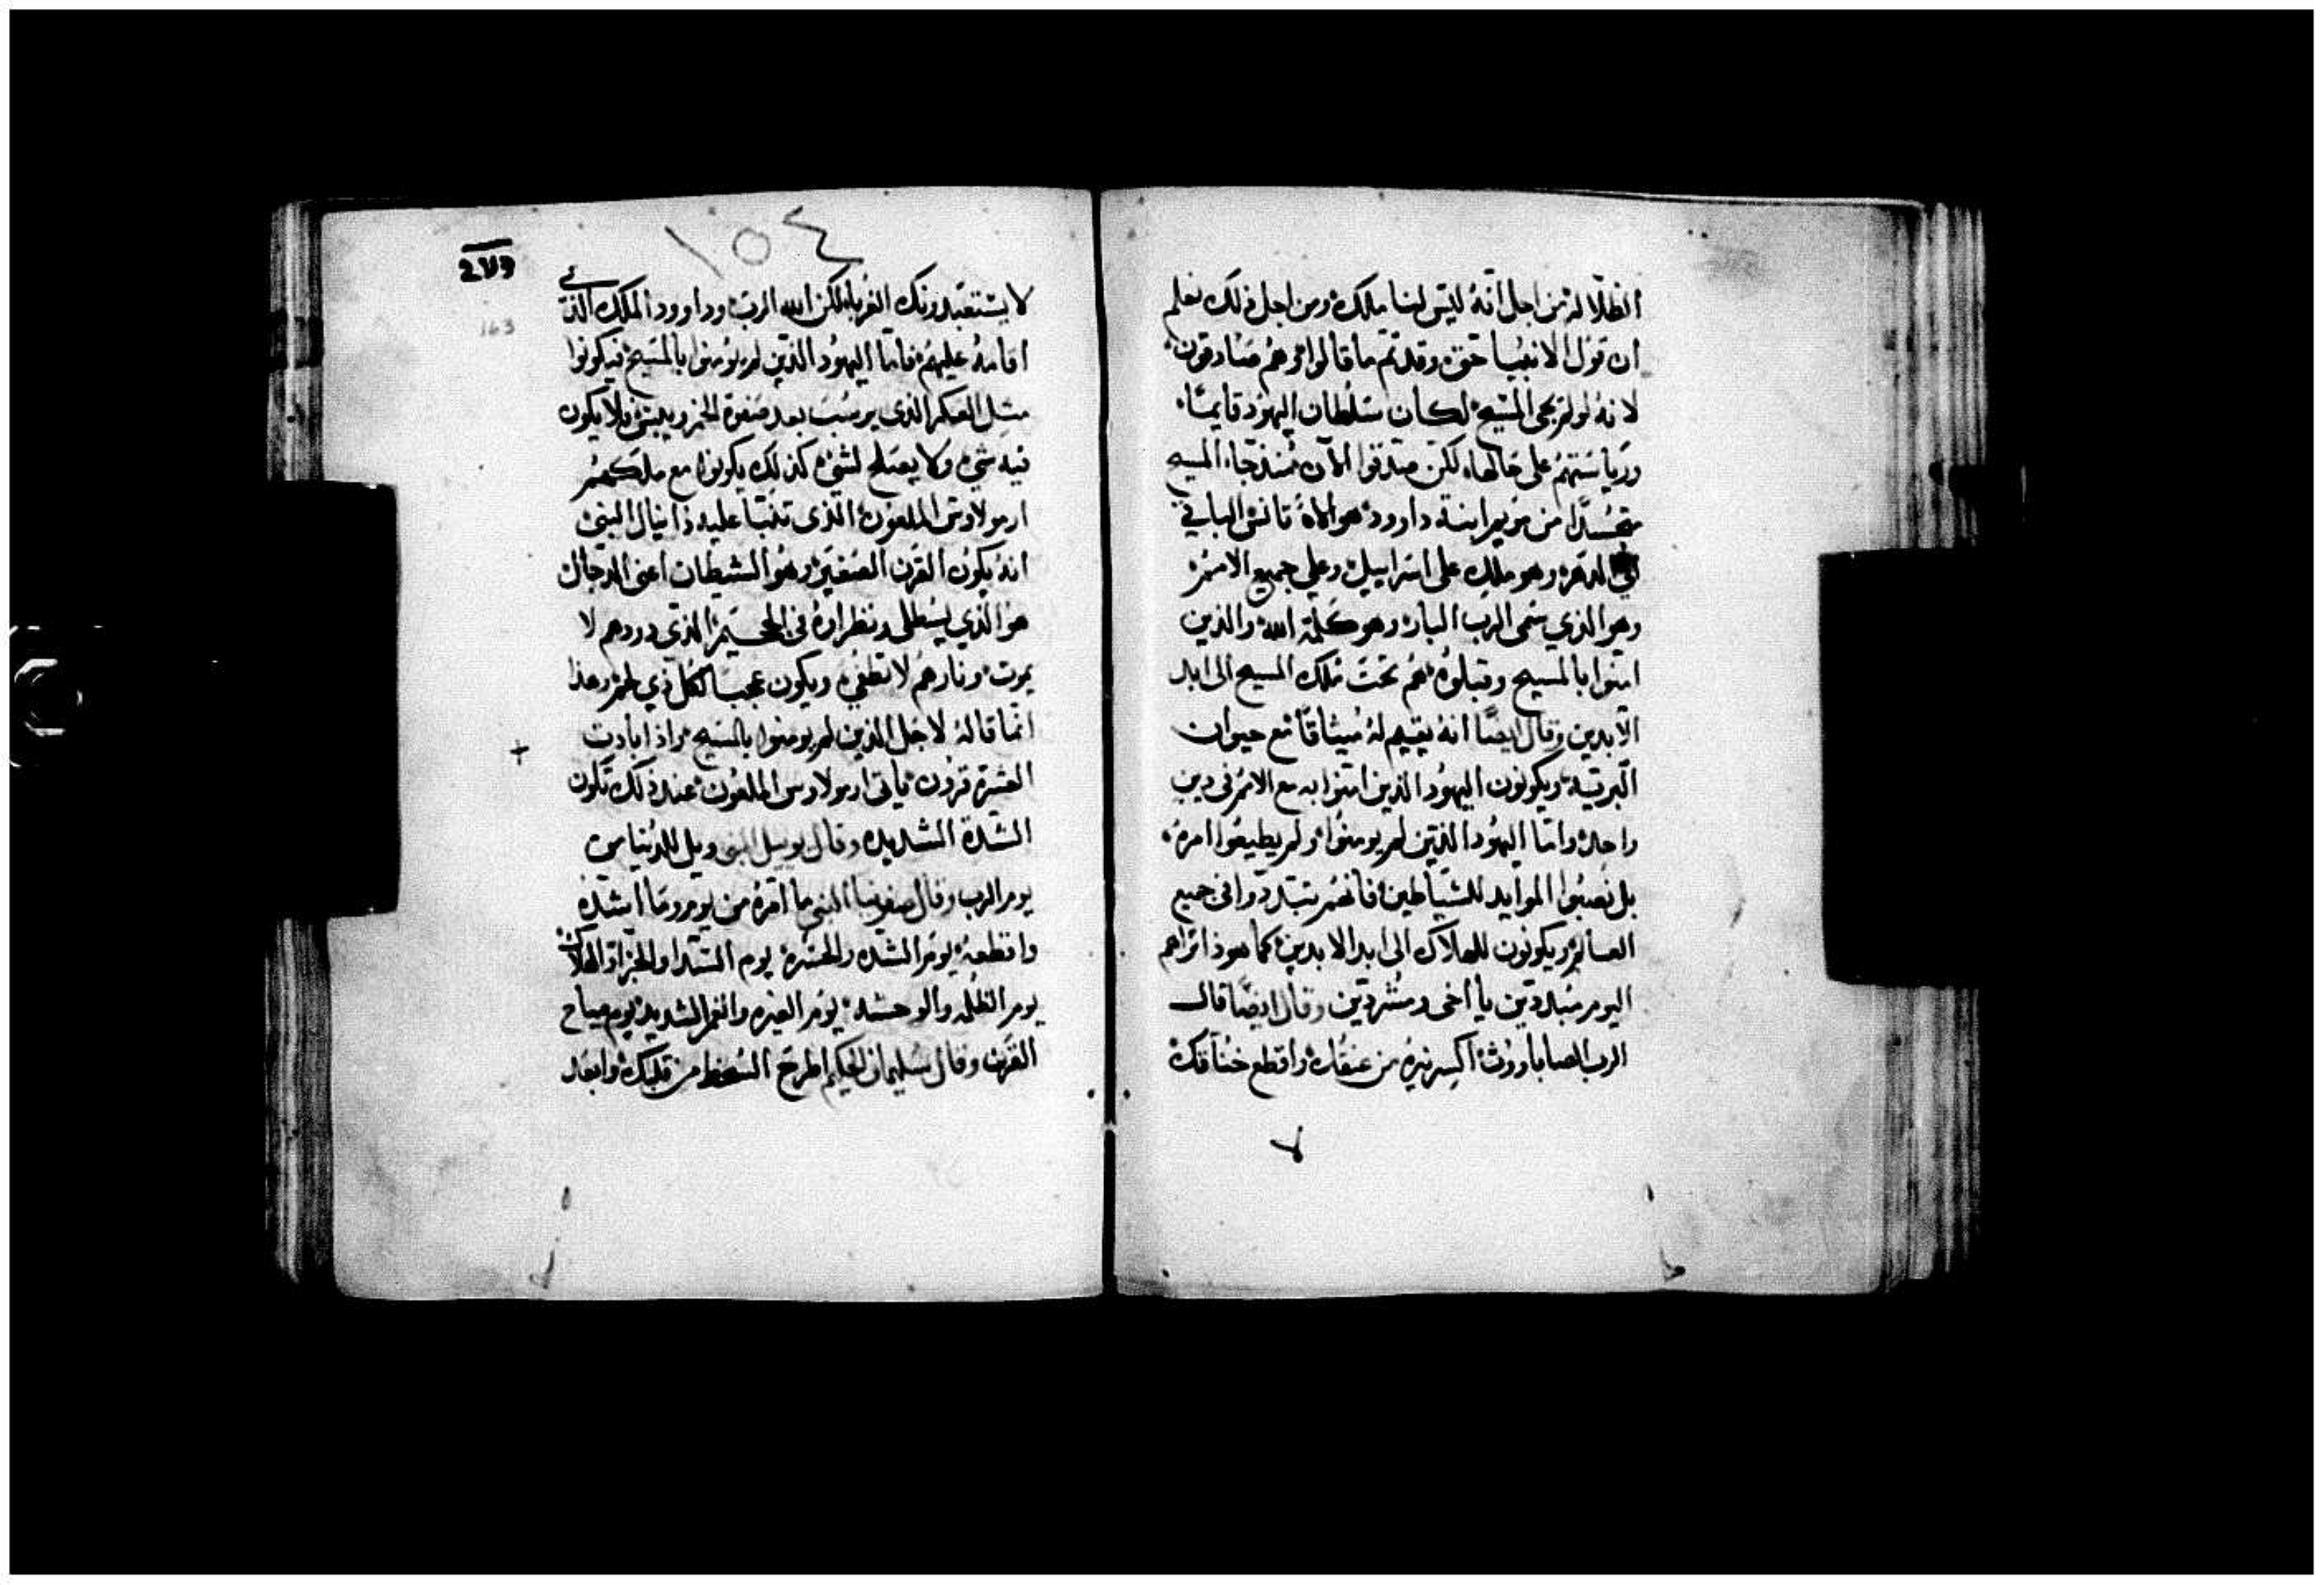 الظلالة من اجل انه ليس لنا ملك ومن اجل ذلك نعلم
ان قول الانبيا حق وقد تم ما قالوا وهم صادقون
لانه لو لم يجي المسيح لكان سلطان اليهود قايمًا
ورياستهم على حالها لكن صدقوا الان منذ جاء المسيح
متجسدًا من مريم ابنة داوود هو الاه تانس الباقي
الي الدهر وهو ملك على اسراييل وعلي جميع الامم
وهو الذي سمى الرب البار وهو كلمة الله والذين
امنوا بالمسيح وقبلوه هم تحت ملك المسيح الى ابد
الابدين وقال ايضًا انه يقيم له ميثاقًا مع حيوان
البرية ويكونون اليهود الذين امنوا به مع الامم في دين
واحد واما اليهود الذين لم يومنوا ولم يطيعوا امره
بل نصبوا الموايد للشياطين فانهم يتبددوا في جميع
العالم ويكونون للهلاك الى ابد الابدين كما هوذا نراهم
اليوم مبددين يا اخى ومشردين وقال ايضًا قال
الرب الصاباووت اكسر نيره من عنقك واقطع خناقك
١٥٤
163
لا يستعبدونك الغربا لكن الله الرب وداوود الملك الذي
اقامه عليهم فاما اليهود الذين لم يومنوا بالمسيح فيكونوا
مثل العكر الذى يرسب بعد صفوة الخمر ويبقى ولا يكون
فيه شي ولا يصلح لشي كذلك يكونوا مع ملكهم
ارمولاوس الملعون الذى تنبا عليه دانيال النبي
انه يكون القرن الصغير وهو الشيطان اعنى الدجال
هو الذي يسطلى ونظراوه في الجحيم الذى دودهم لا
يموت ونارهم لا تطفي ويكون عجبًا لكل ذي لحم وهذا
انما قاله لاجل الذين لم يومنوا بالمسيح واذا بادت
العشرة قرون ياتى ارمولاوس الملعون عند ذلك تكون
الشدة الشديده وقال يوييل النبي ويل للدنيا من
يوم الرب وقال صفونيا النبي ما امره من يوم وما اشده
وافظعه يوم الشده والحسرة يوم الشدا والخزا والهلاك
يوم الظلمه والوحشه يوم الغيره والغم الشديد يوم صياح
القرن وقال سليمان الحكيم اطرح السخط من قلبك وابعد